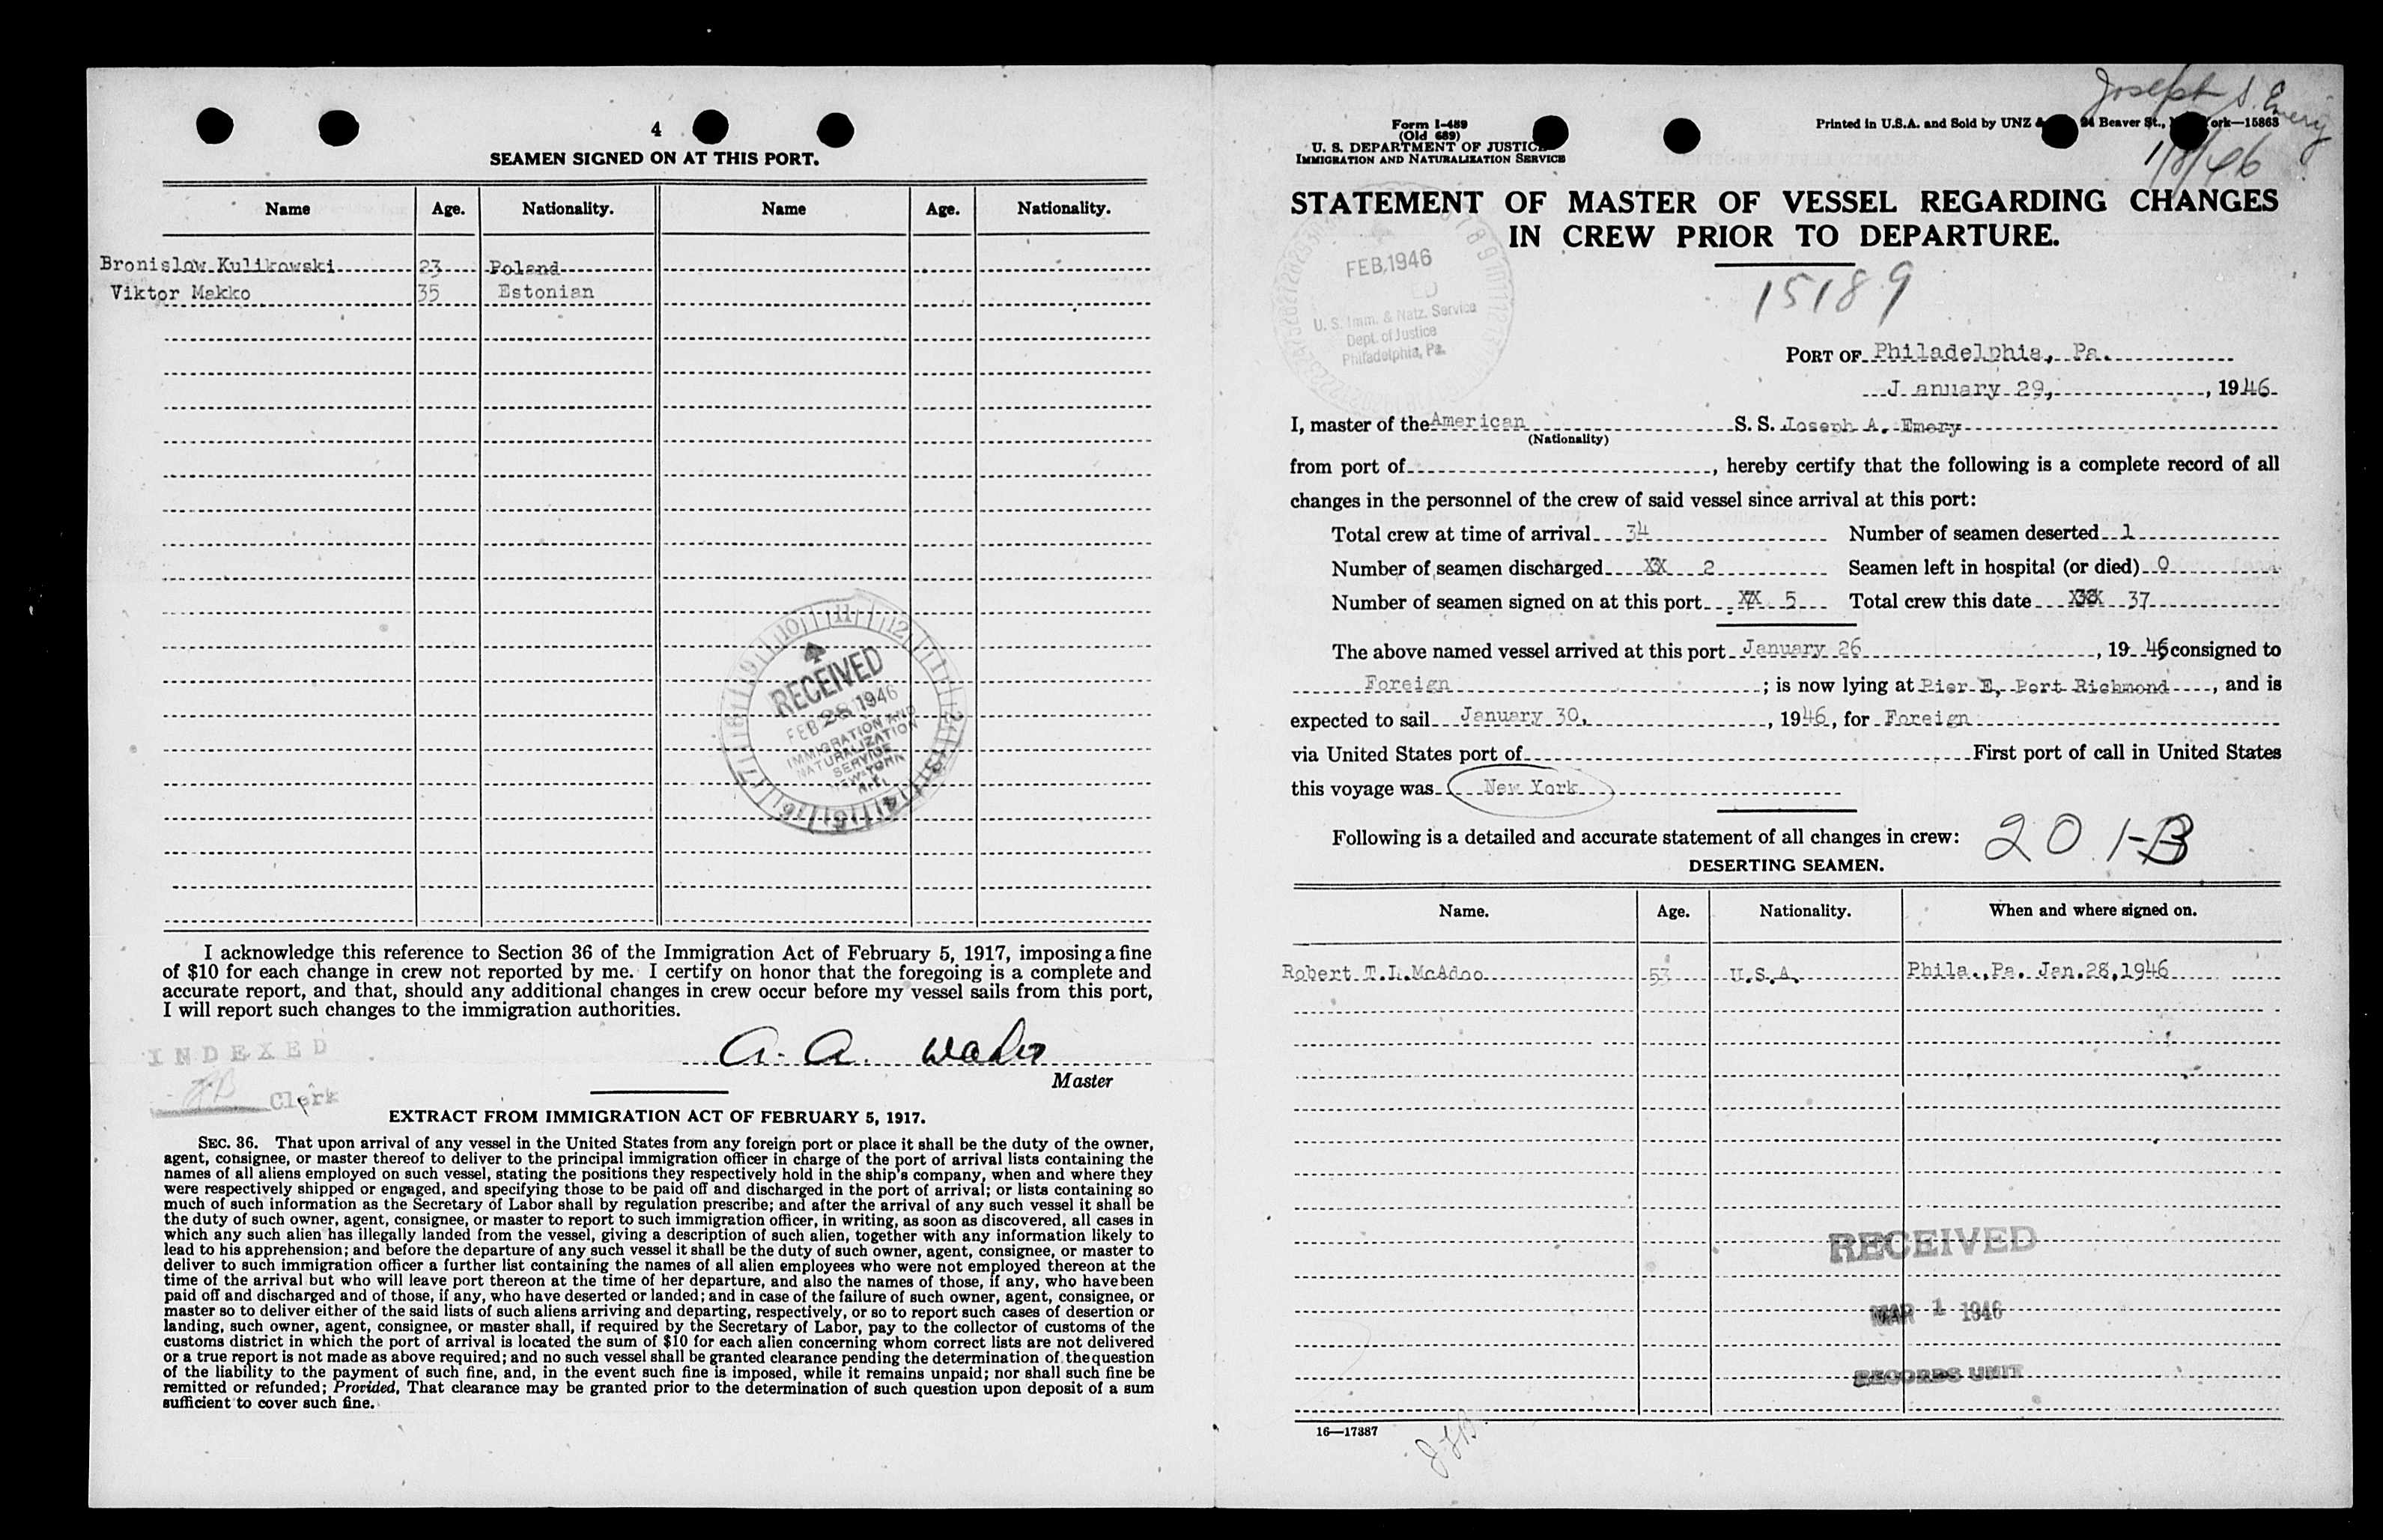 4
SEAMEN SIGNED ON AT THIS PORT.
Name Age. Nationality. Name Age. Nationality.
Bronislow Kulikowski 23 Poland
Viktor Makko 35 Estonian
RECEIVED
FEB 28 1946
IMMIGRATION AND
NATURALIZATION
SERVICE
NEW YORK
I acknowledge this reference to Section 36 of the Immigration Act of February 5, 1917, imposing a fine
of $10 for each change in crew not reported by me. I certify on honor that the foregoing is a complete and
accurate report, and that, should any additional changes in crew occur before my vessel sails from this port,
I will report such changes to the immigration authorities.
INDEXED
Clerk
A. A.
Master
EXTRACT FROM IMMIGRATION ACT OF FEBRUARY 5, 1917.
SEC. 36. That upon arrival of any vessel in the United States from any foreign port or place it shall be the duty of the owner,
agent, consignee, or master thereof to deliver to the principal immigration officer in charge of the port of arrival lists containing the
names of all aliens employed on such vessel, stating the positions they respectively hold in the ship's company, when and where they
were respectively shipped or engaged, and specifying those to be paid off and discharged in the port of arrival; or lists containing so
much of such information as the Secretary of Labor shall by regulation prescribe; and after the arrival of any such vessel it shall be
the duty of such owner, agent, consignee, or master to report to such immigration officer, in writing, as soon as discovered, all cases in
which any such alien has illegally landed from the vessel, giving a description of such alien, together with any information likely to
lead to his apprehension; and before the departure of any such vessel it shall be the duty of such owner, agent, consignee, or master to
deliver to such immigration officer a further list containing the names of all alien employees who were not employed thereon at the
time of the arrival but who will leave port thereon at the time of her departure, and also the names of those, if any, who have been
paid off and discharged and of those, if any, who have deserted or landed; and in case of the failure of such owner, agent, consignee, or
master so to deliver either of the said lists of such aliens arriving and departing, respectively, or so to report such cases of desertion or
landing, such owner, agent, consignee, or master shall, if required by the Secretary of Labor, pay to the collector of customs of the
customs district in which the port of arrival is located the sum of $10 for each alien concerning whom correct lists are not delivered
or a true report is not made as above required; and no such vessel shall be granted clearance pending the determination of the question
of the liability to the payment of such fine, and, in the event such fine is imposed, while it remains unpaid; nor shall such fine be
remitted or refunded; Provided, That clearance may be granted prior to the determination of such question upon deposit of a sum
sufficient to cover such fine.
Joseph S. Emery
1/8/46
Form I-489
(Old 689)
U. S. DEPARTMENT OF JUSTICE
IMMIGRATION AND NATURALIZATION SERVICE
Printed in U.S.A. and Sold by UNZ & 24 Beaver St., ork—15863
STATEMENT OF MASTER OF VESSEL REGARDING CHANGES
IN CREW PRIOR TO DEPARTURE.
FEB, 1946
U. S. Imm. & Natz. Service
Dept. of Justice
Philadelphia, Pa.
15189
PORT OF Philadelphia, Pa.
J anuary 29, , 1946
I, master of the American S. S. Joseph A. Emery
(Nationality)
from port of , hereby certify that the following is a complete record of all
changes in the personnel of the crew of said vessel since arrival at this port:
Total crew at time of arrival 34 Number of seamen deserted 1
Number of seamen discharged XX 2 Seamen left in hospital (or died) 0
Number of seamen signed on at this port XX 5 Total crew this date XXX 37
The above named vessel arrived at this port January 26 , 19 46 consigned to
Foreign ; is now lying at Pier E, Port Richmond , and is
expected to sail January 30, , 1946, for Foreign
via United States port of First port of call in United States
this voyage was New York
Following is a detailed and accurate statement of all changes in crew:
201-B
DESERTING SEAMEN.
Name. Age. Nationality. When and where signed on.
Robert T.L.McAdoo 53 U.S.A. Phila.,Pa. Jan.28,1946
RECEIVED
MAR 1 1946
RECORDS UNIT
16—17387